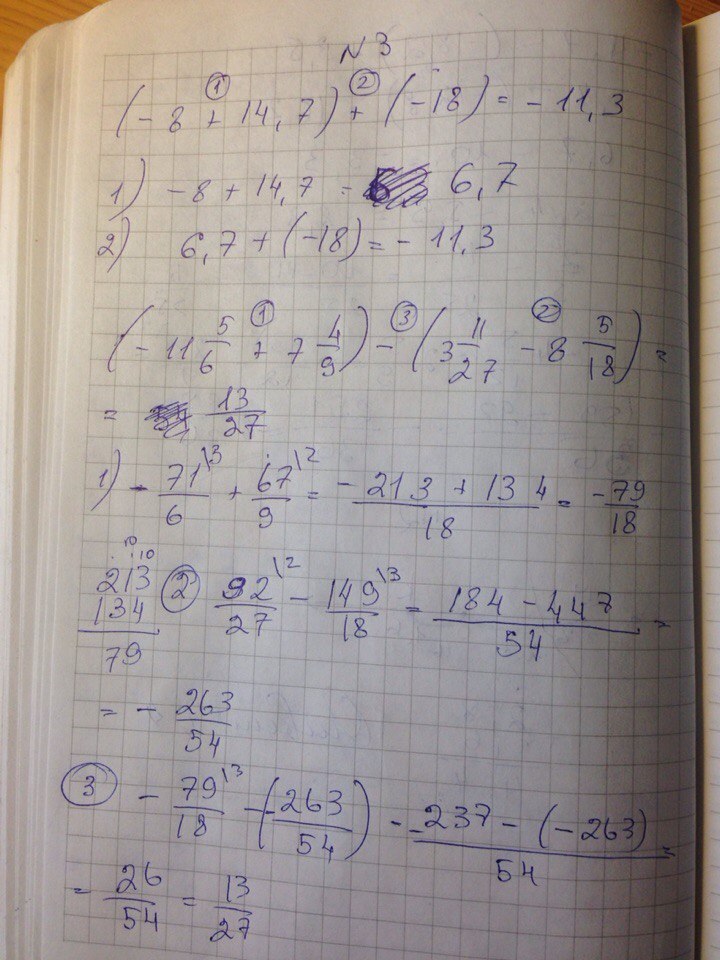 N 3
(- 8 +① 14,7) +② (-18) = - 11,3
1) -8 + 14,7 = 6,7
2) 6,7 + (-18) = - 11,3
(- 11 5/6 +① 7 4/9) -③ (3 11/27 -② 8 5/18) =
= 13/27
1) - 71\3/6 + 67\2/9 = (- 213 + 134)/18 = -79/18
10 10
213
134
79
② 92\2/27 - 149\3/18 = (184 - 447)/54 =
= - 263/54
③ - 79\3/18 - (-263/54) = (-237 - (-263))/54 =
= 26/54 = 13/27